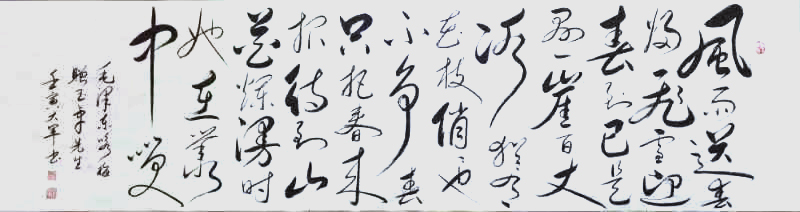 風雨送春
归飛雪迎
春到已是
悬崖百丈
冰犹有
花枝俏也
不争春
只把春来
报待到山
花烂漫时
她在丛
中笑
毛泽东咏梅
赠玉先生
壬寅大军书